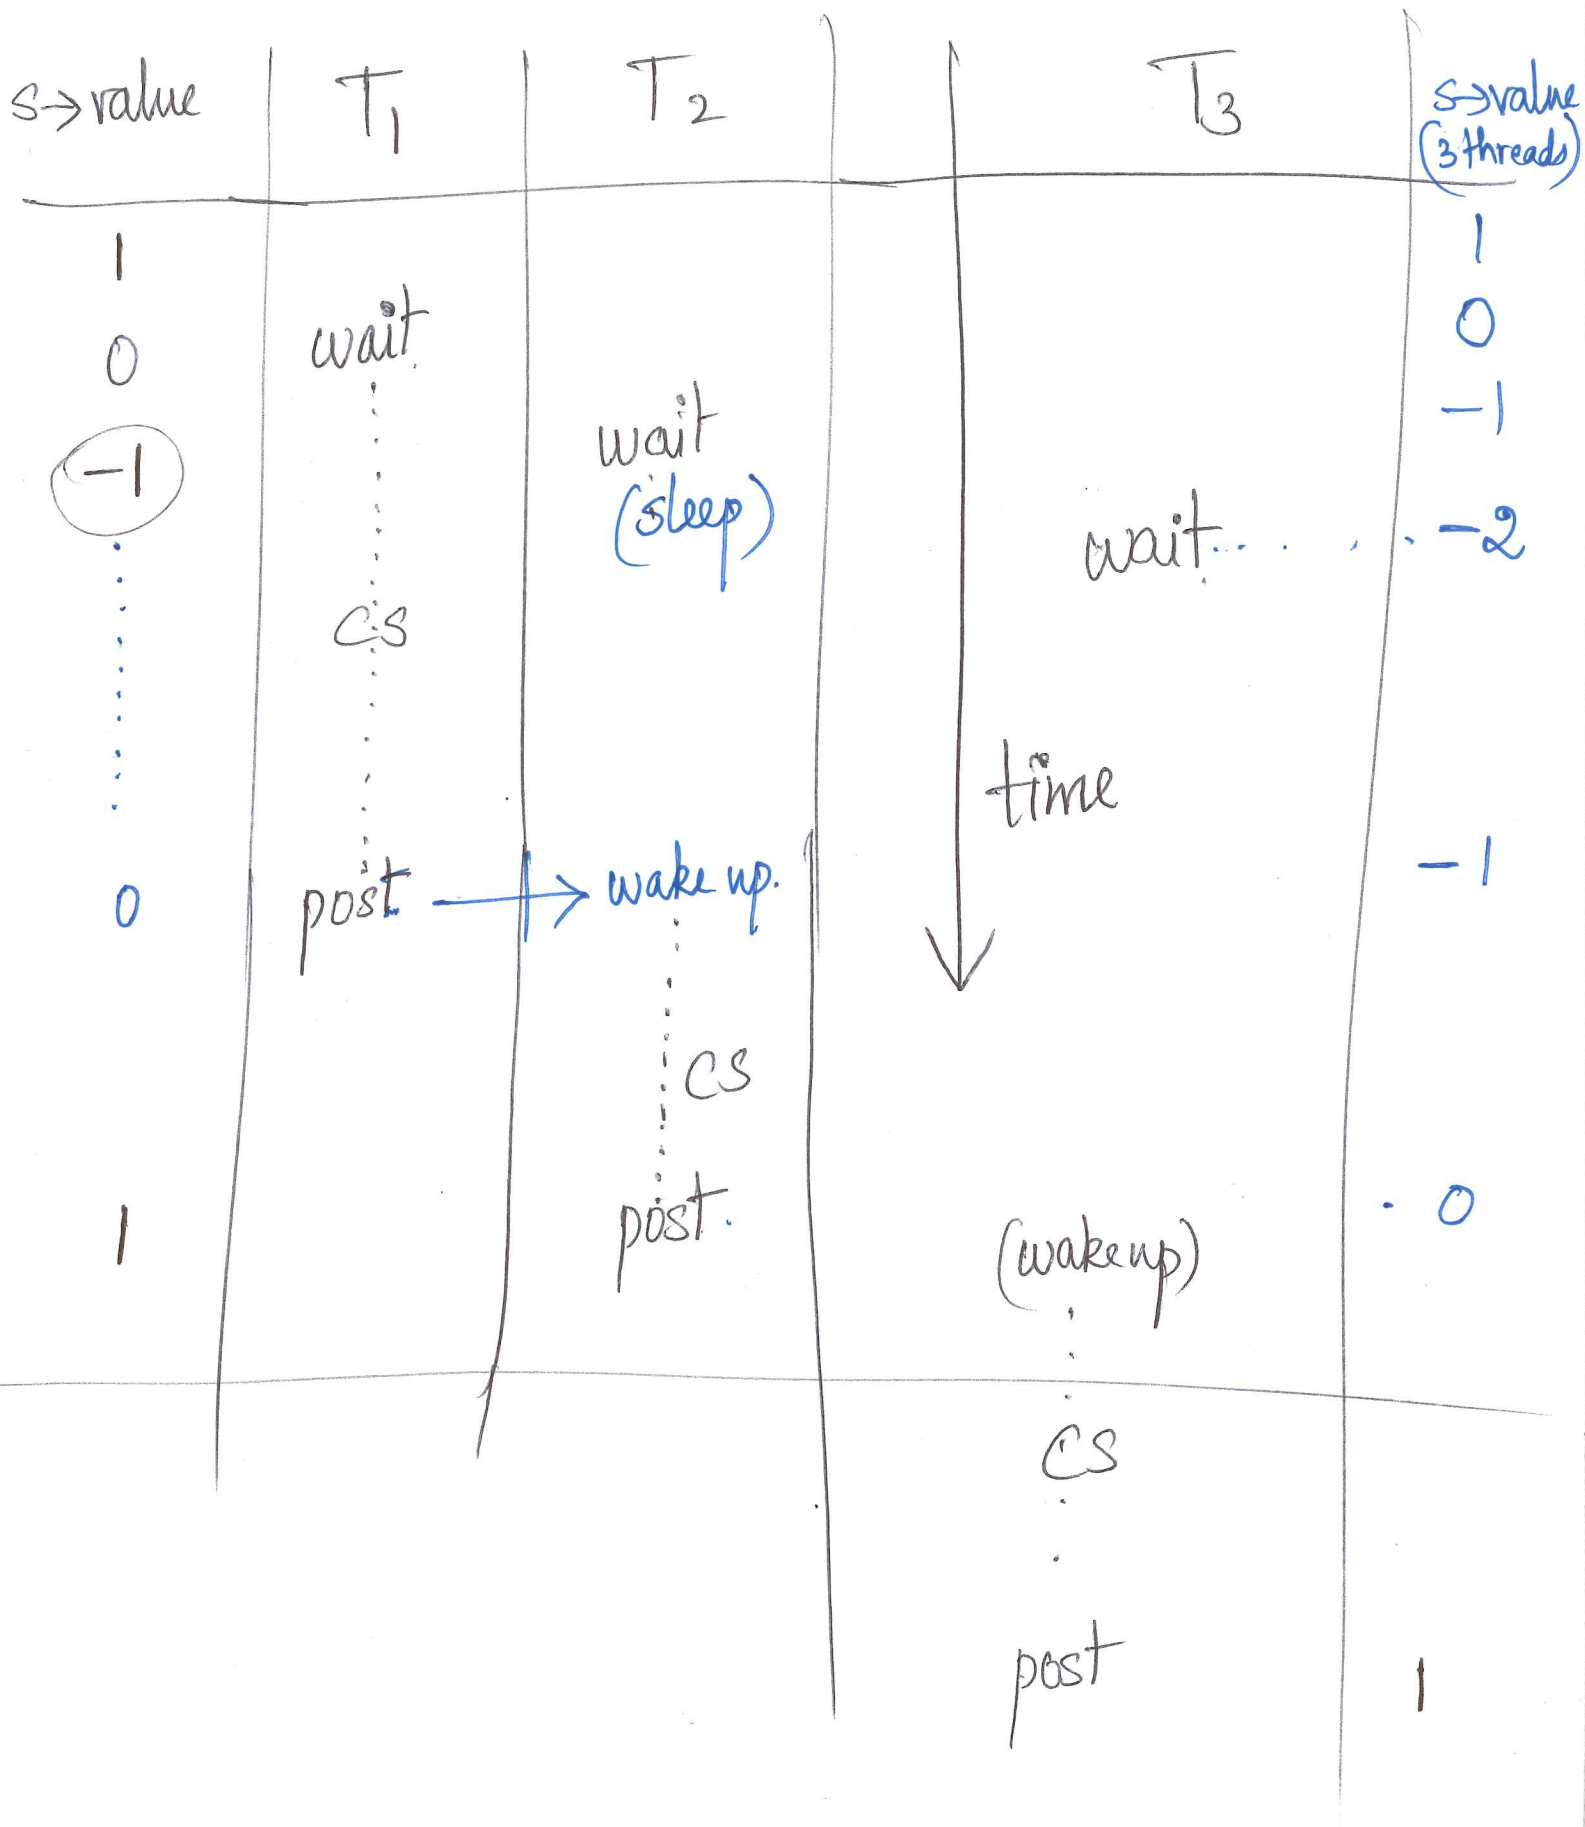 s→value T1 T2 T3 s→value
(3 threads)
1 1
0 wait 0
-1 wait -1
(sleep) wait -2
CS
time
0 post → wake up. -1
CS
1 post. (wakeup) 0
CS
post 1